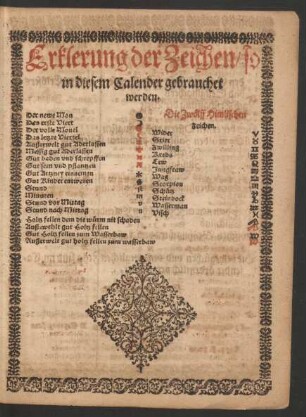 Erklerung der Zeichen / so
in diesem Calender gebrauchet
werden.
Der newe Mon
Das erste Viert
Der volle Monet
Das letzte Viertel.
Außerwelt gut Aderlassen
Messig gut Aderlassen
Gut baden vnd schrepffen
Gut seen vnd pflantzen
Gut Artzney einnemen
Gut Kinder entwenen
Stund
Minuten
Stund vor Mittag
Stund nach Mittag
Holtz fellen dem die würm nit schaden
Außerwehlt gut Holtz fellen
Gut Holtz fellen zum Wasserbaw
Außerwelt gut holtz fellen zum wasserbaw
Die Zwölff Himlischen
Zeichen.
Wider
Stier
Zwilling
Krebs
Lew
Jungfraw
Wag
Scorpion
Schütz
Steinbock
Wasserman
Visch